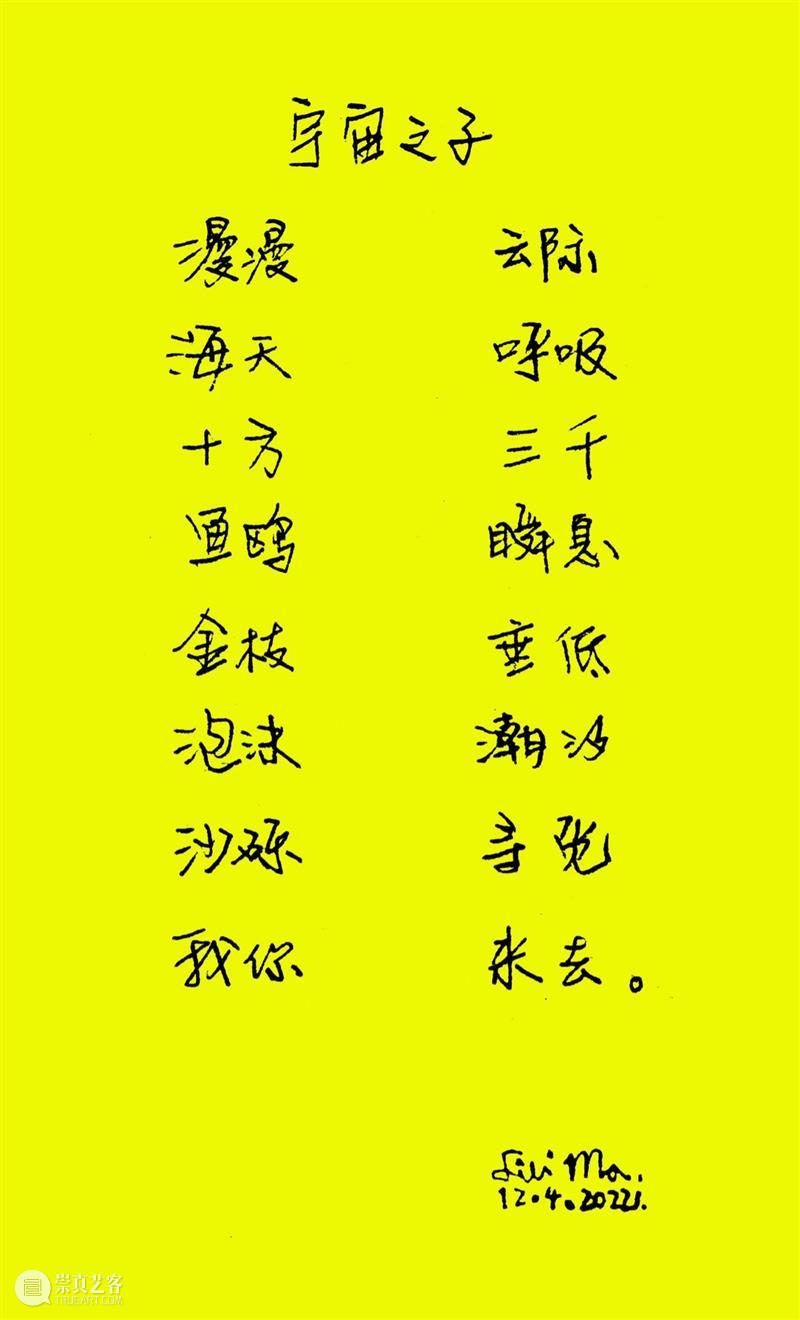 宇宙之子
漫漫 云际
海天 呼吸
十方 三千
鸥 瞬息
金枝 垂低
泡沫 潮汐
沙砾 寻觅
我你 来去。
Lili Ma.
12.4.2022.
崇真艺客
TRUEART.COM